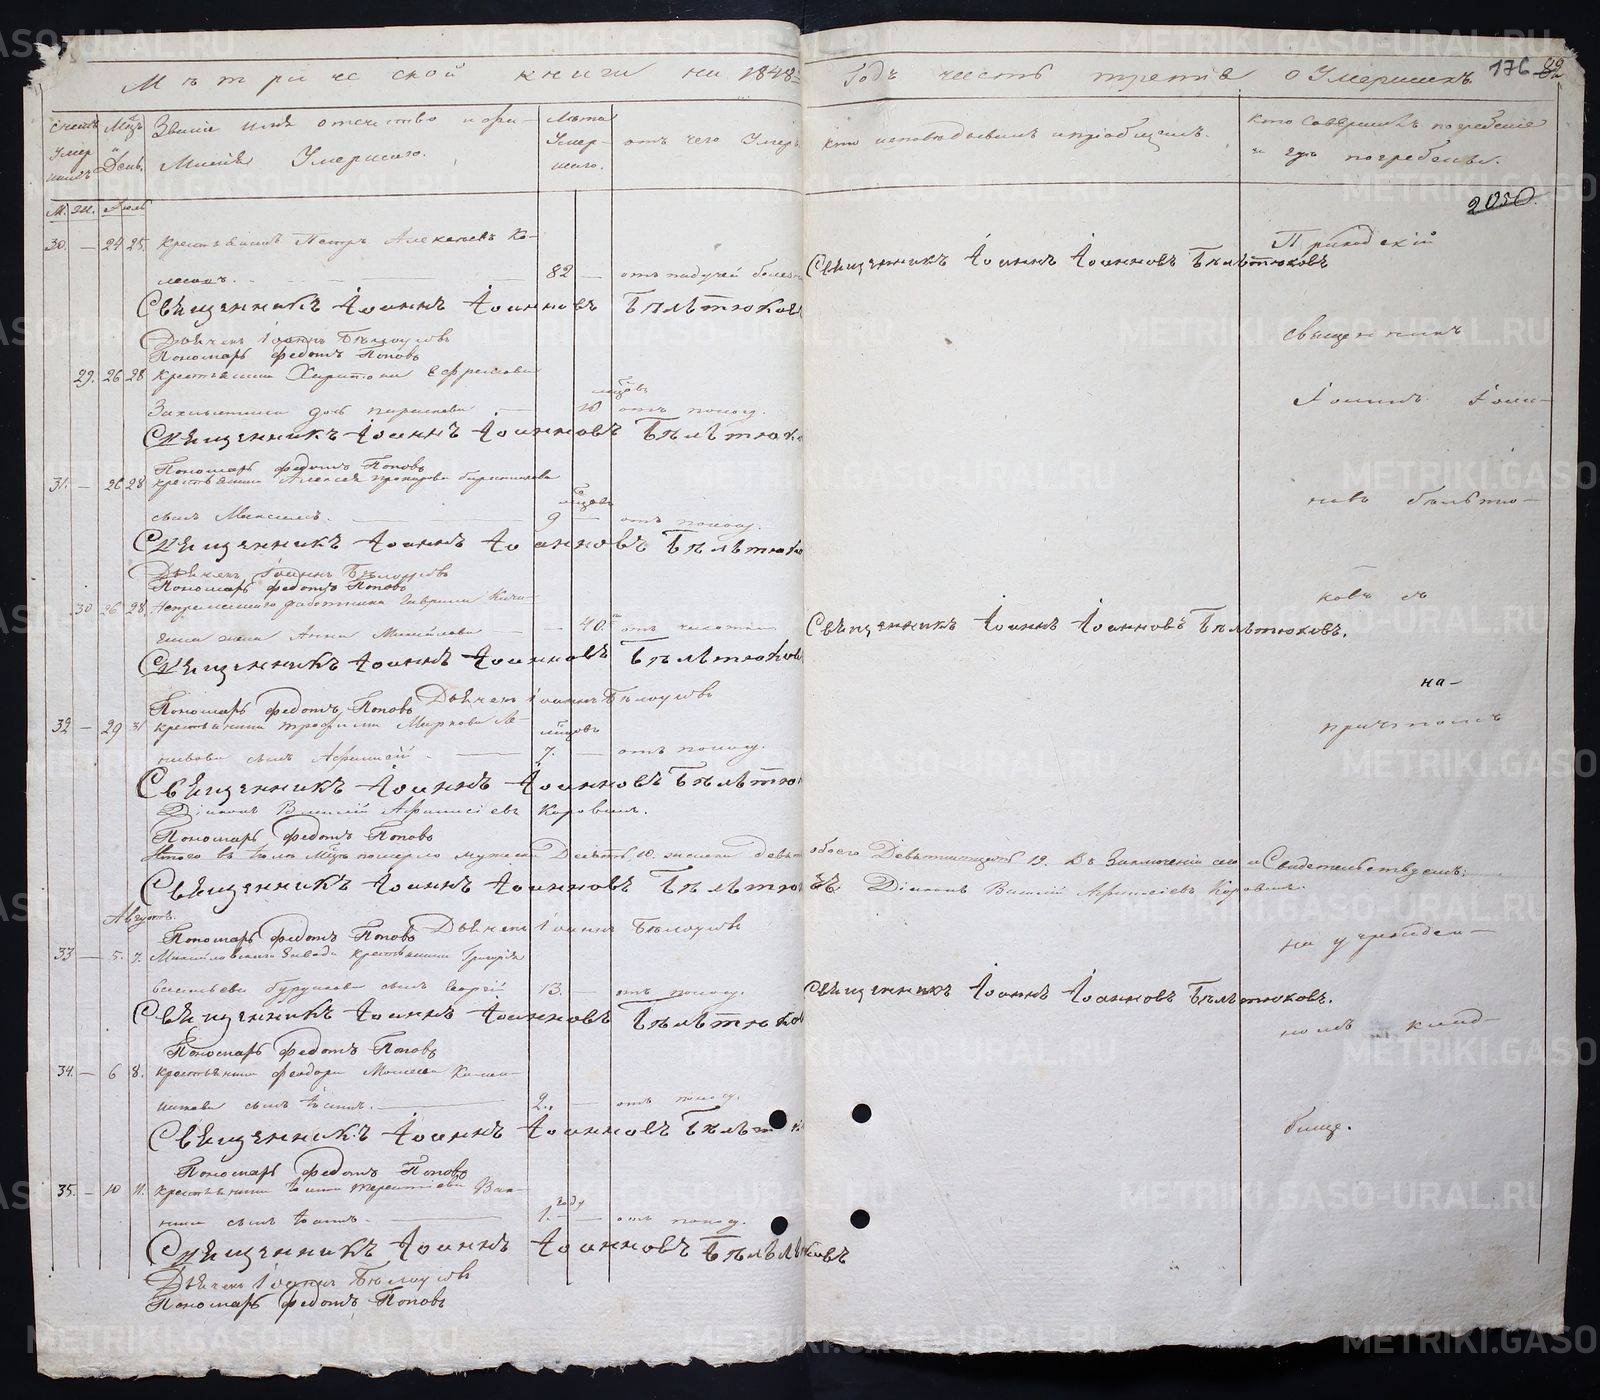 Метрической книги на 1848 Годъ часть третія о Умершихъ. 176
Счетъ Умершихъ
Мѣць и День.
Званіе имя отчество и фамилія Умершаго.
Лѣта Умершаго.
отъ чего Умеръ
кто исповѣдывалъ и пріобщалъ.
кто совершалъ погребеніе и гдѣ погребены.
М. Ж. Іюль
2050
30. — 24 25. Крестьянинъ Петръ Алексѣевъ Ко-
82 — отъ падучей болезни
Священникъ Іоаннъ Іоанновъ Бѣлѣтюковъ
Приходскій
Священникъ Іоаннъ Іоанновъ Бѣлѣтюковъ
Дьячекъ Іоаннъ Бѣлоусовъ
Пономарь Федотъ Поповъ
священникъ
29. 26 28 Крестьянина Харитона Ефремова
дочь 10 отъ поносу.
Іоаннъ Іоан-
Священникъ Іоаннъ Іоанновъ Бѣлѣтюко
Пономарь Федотъ Поповъ
31. — 26 28 Крестьянина Алексея
сынъ Максимъ. 9 — отъ поносу.
новъ Бѣлѣтю-
Священникъ Іоаннъ Іоанновъ Бѣлѣтюко
Дьячекъ Іоаннъ Бѣлоусовъ
Пономарь Федотъ Поповъ
ковъ съ
30 26 28. Непременнаго работника Гаврила
жена Анна Михайлова — 40. отъ чахотки
Священникъ Іоаннъ Іоанновъ Бѣлѣтюковъ.
Священникъ Іоаннъ Іоанновъ Бѣлѣтюков
Дьячекъ Іоаннъ Бѣлоусовъ
Пономарь Федотъ Поповъ
на-
причтомъ
32 — 29 31 Крестьянина Трофима Маркова
сынъ 7. — отъ поносу.
Священникъ Іоаннъ Іоанновъ Бѣлѣтю
Діаконъ Василій Афанасіевъ Коровинъ.
Пономарь Федотъ Поповъ
Итого въ Іюлѣ Мѣцѣ померло мужеска Десять 10. женска девять обоего Девятнадцать 19. Въ Заключеніи сего и Свидетельствуемъ:
Священникъ Іоаннъ Іоанновъ Бѣлѣтюковъ. Діаконъ Василій Афанасіевъ Коровинъ.
Августъ.
Дьячекъ Іоаннъ Бѣлоусовъ
Пономарь Федотъ Поповъ
на учрежден-
33 — 5. 7. Михайловскаго Завода крестьянина Григорія
Васильева сынъ Георгій 13. — отъ поносу.
Священникъ Іоаннъ Іоанновъ Бѣлѣтюковъ.
Священникъ Іоаннъ Іоанновъ Бѣлѣтюков
номъ клад-
Пономарь Федотъ Поповъ
34. — 6 8. Крестьянина Феодора Моисеева
сынъ Іоаннъ. 2. — отъ поносу.
Священникъ Іоаннъ Іоанновъ Бѣлѣт
бище.
Пономарь Федотъ Поповъ
35. — 10 11. Крестьянина Іоанна Терентіева
году
сынъ Іоаннъ. 1. — отъ поносу.
Священникъ Іоаннъ Іоанновъ Бѣлѣтюковъ
Дьячекъ Іоаннъ Бѣлоусовъ
Пономарь Федотъ Поповъ
METRIKI.GASO-URAL.RU